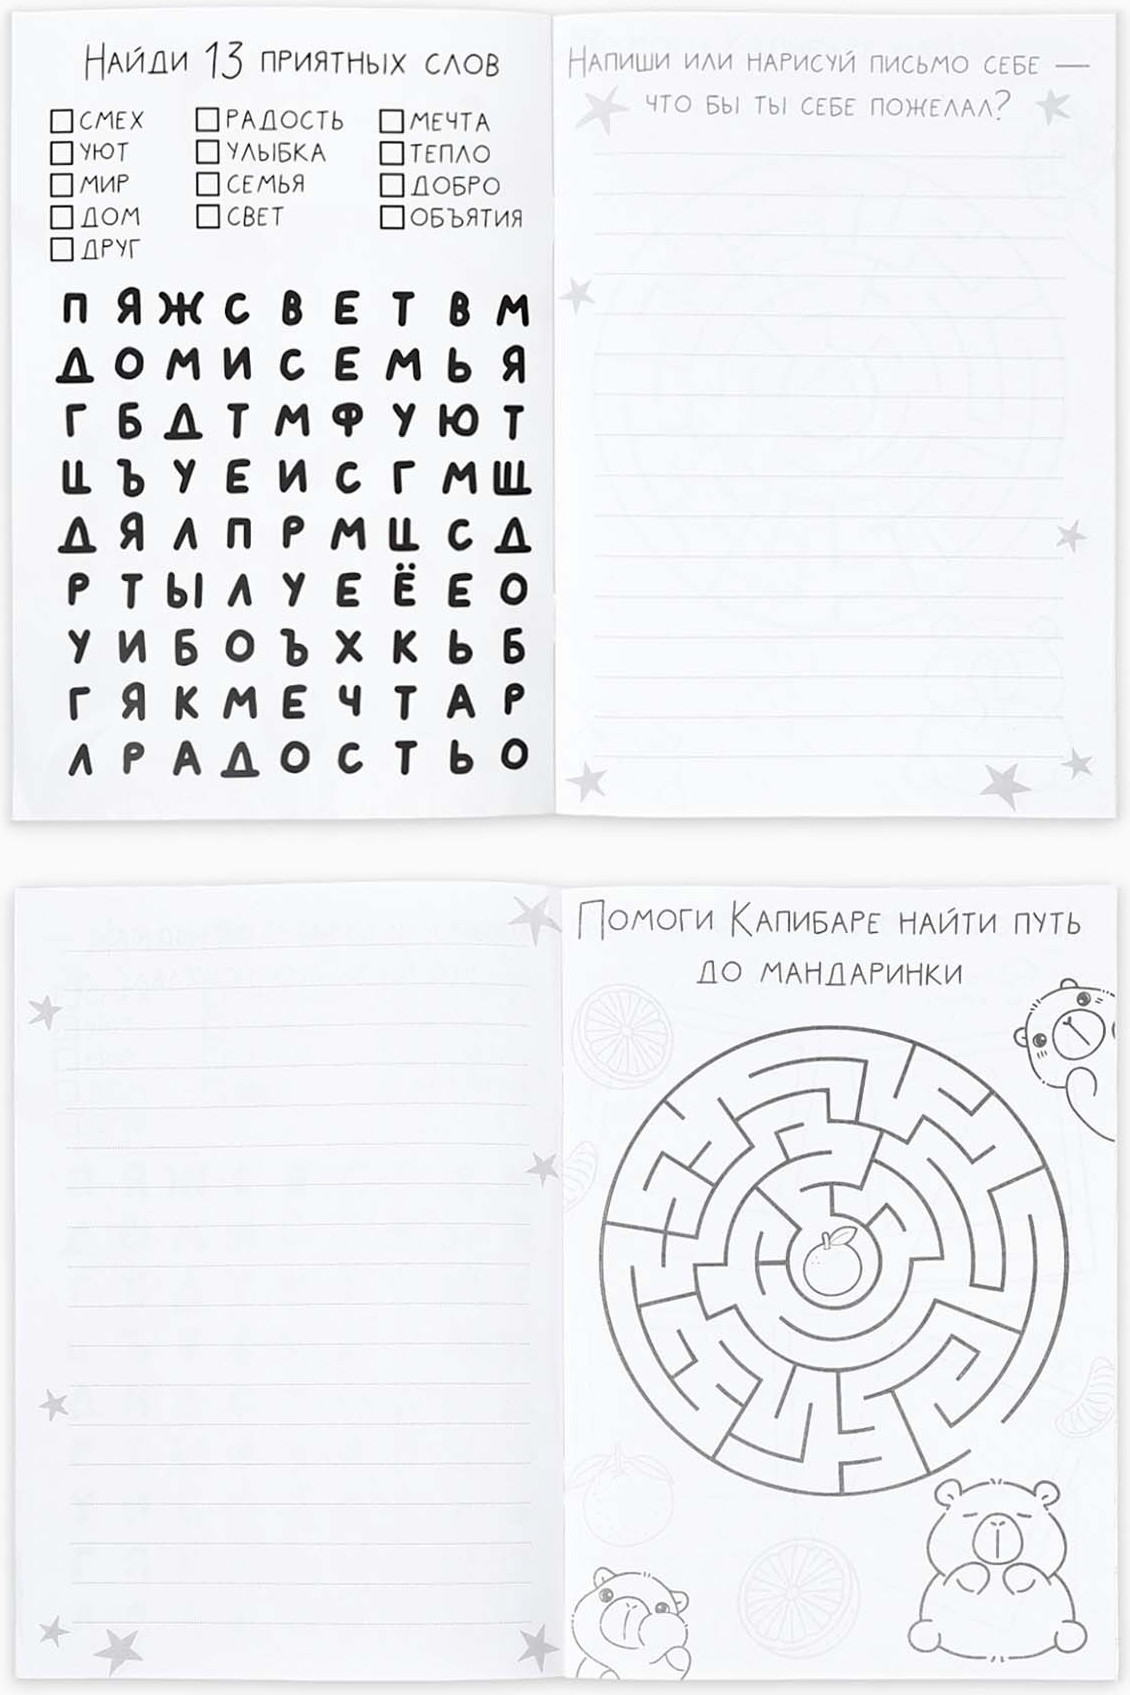 Найди 13 приятных слов
смех радость мечта
уют улыбка тепло
мир семья добро
дом свет объятия
друг
П Я Ж С В Е Т В М
Д О М И С Е М Ь Я
Г Б Д Т М Ф У Ю Т
Ц Ъ У Е И С Г М Ш
Д Я Л П Р М Ц С Д
Р Т Ы Л У Е Ё Е О
У И Б О Ъ Х К Ь Б
Г Я К М Е Ч Т А Р
Л Р А Д О С Т Ь О
Напиши или нарисуй письмо себе —
что бы ты себе пожелал?
Помоги Капибаре найти путь
до мандаринки